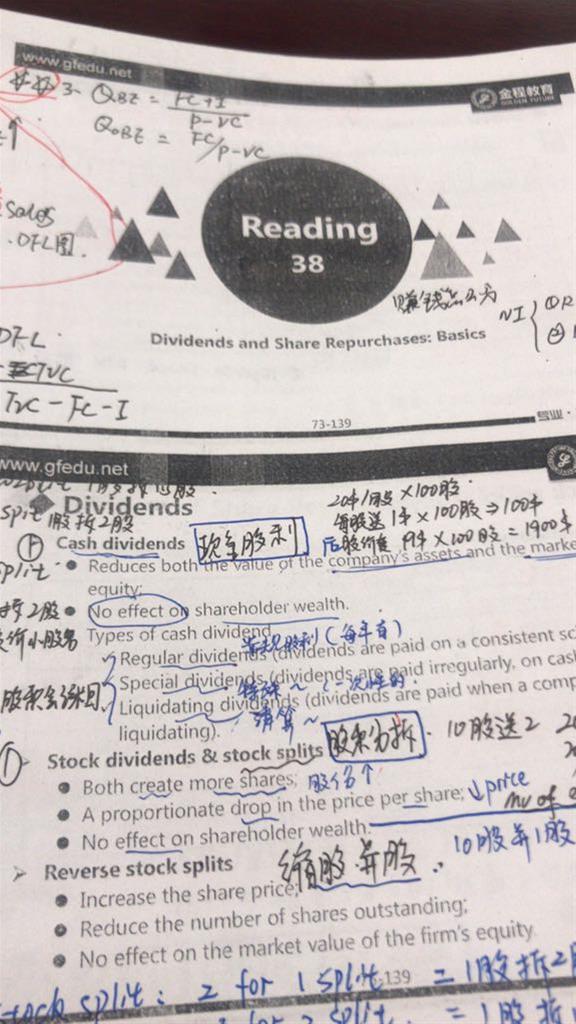 www.gfedu.net
金程教育
GOLDEN FUTURE
3- QBE = FC+I / P-VC
QOBE = FC/P-VC
sales
DFL图.
Reading
38
赚钱怎么分
NI
Dividends and Share Repurchases: Basics
DFL
TVC - FC - I
73-139
专业·
www.gfedu.net
Dividends
split 1股拆2股
20$/股 × 100股
每股送1$ × 100股 ⇒ 100$
后股价是 19$ × 100股 = 1900$
Cash dividends 现金股利
Reduces both the value of the company's assets and the marke
equity;
拆2股
No effect on shareholder wealth.
Types of cash dividend
常规股利 (每年有)
Regular dividends (dividends are paid on a consistent sc
Special dividends (dividends are paid irregularly, on cas
特殊~ (一次性的
Liquidating dividends (dividends are paid when a comp
liquidating). 清算~
Stock dividends & stock splits 股票分拆 10股送2
Both create more shares; 股份↑
A proportionate drop in the price per share; ↓price
mv of
No effect on shareholder wealth.
10股并1股
Reverse stock splits 缩股 并股
Increase the share price;
Reduce the number of shares outstanding;
No effect on the market value of the firm's equity
139
stock split: 2 for 1 split = 1股拆2股
for 2 split = 1股拆